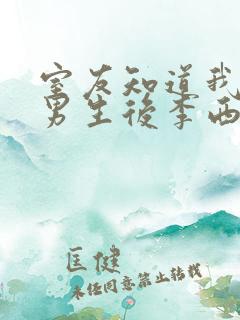 室友知道我
男生後李西
匡健
未经同意禁止转载